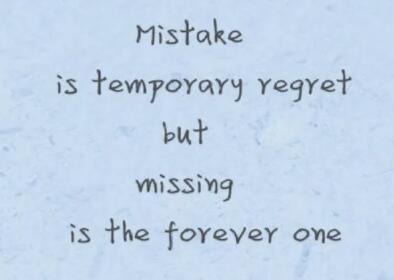 Mistake
is temporary regret
but
missing
is the forever one